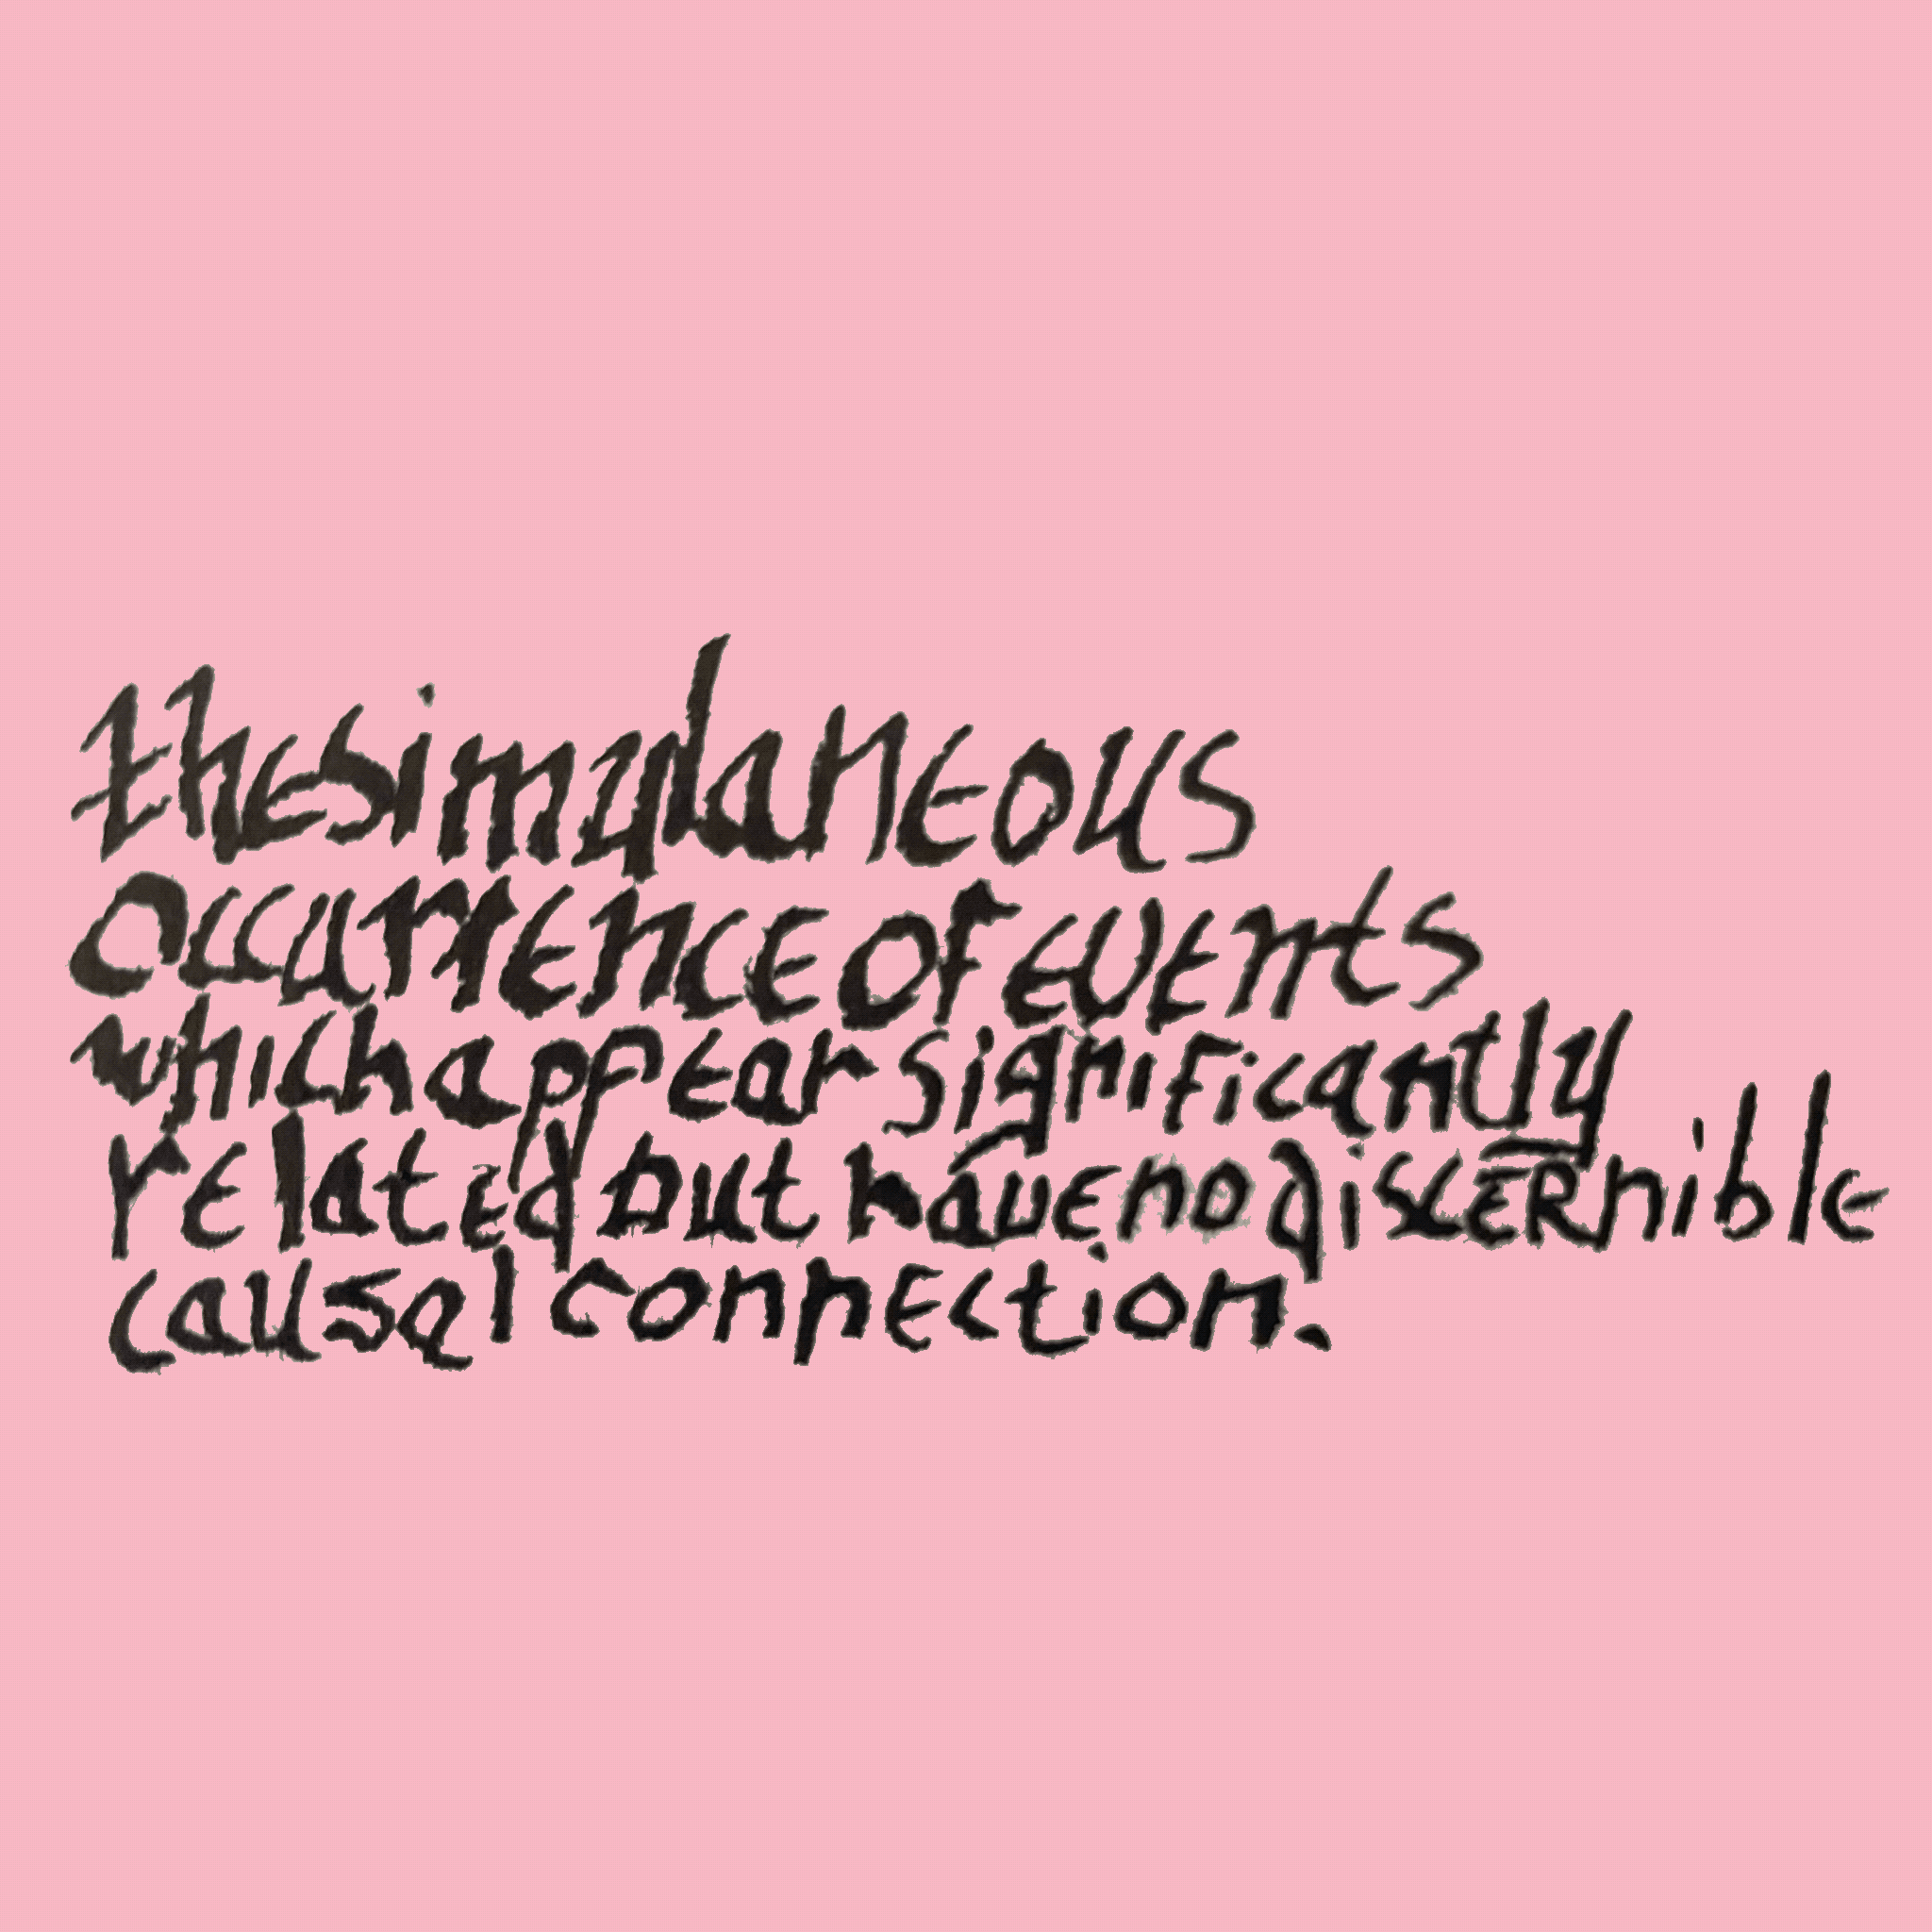 the simulaneous
occurrence of events
which appear significantly
related but have no discernible
causal connection.